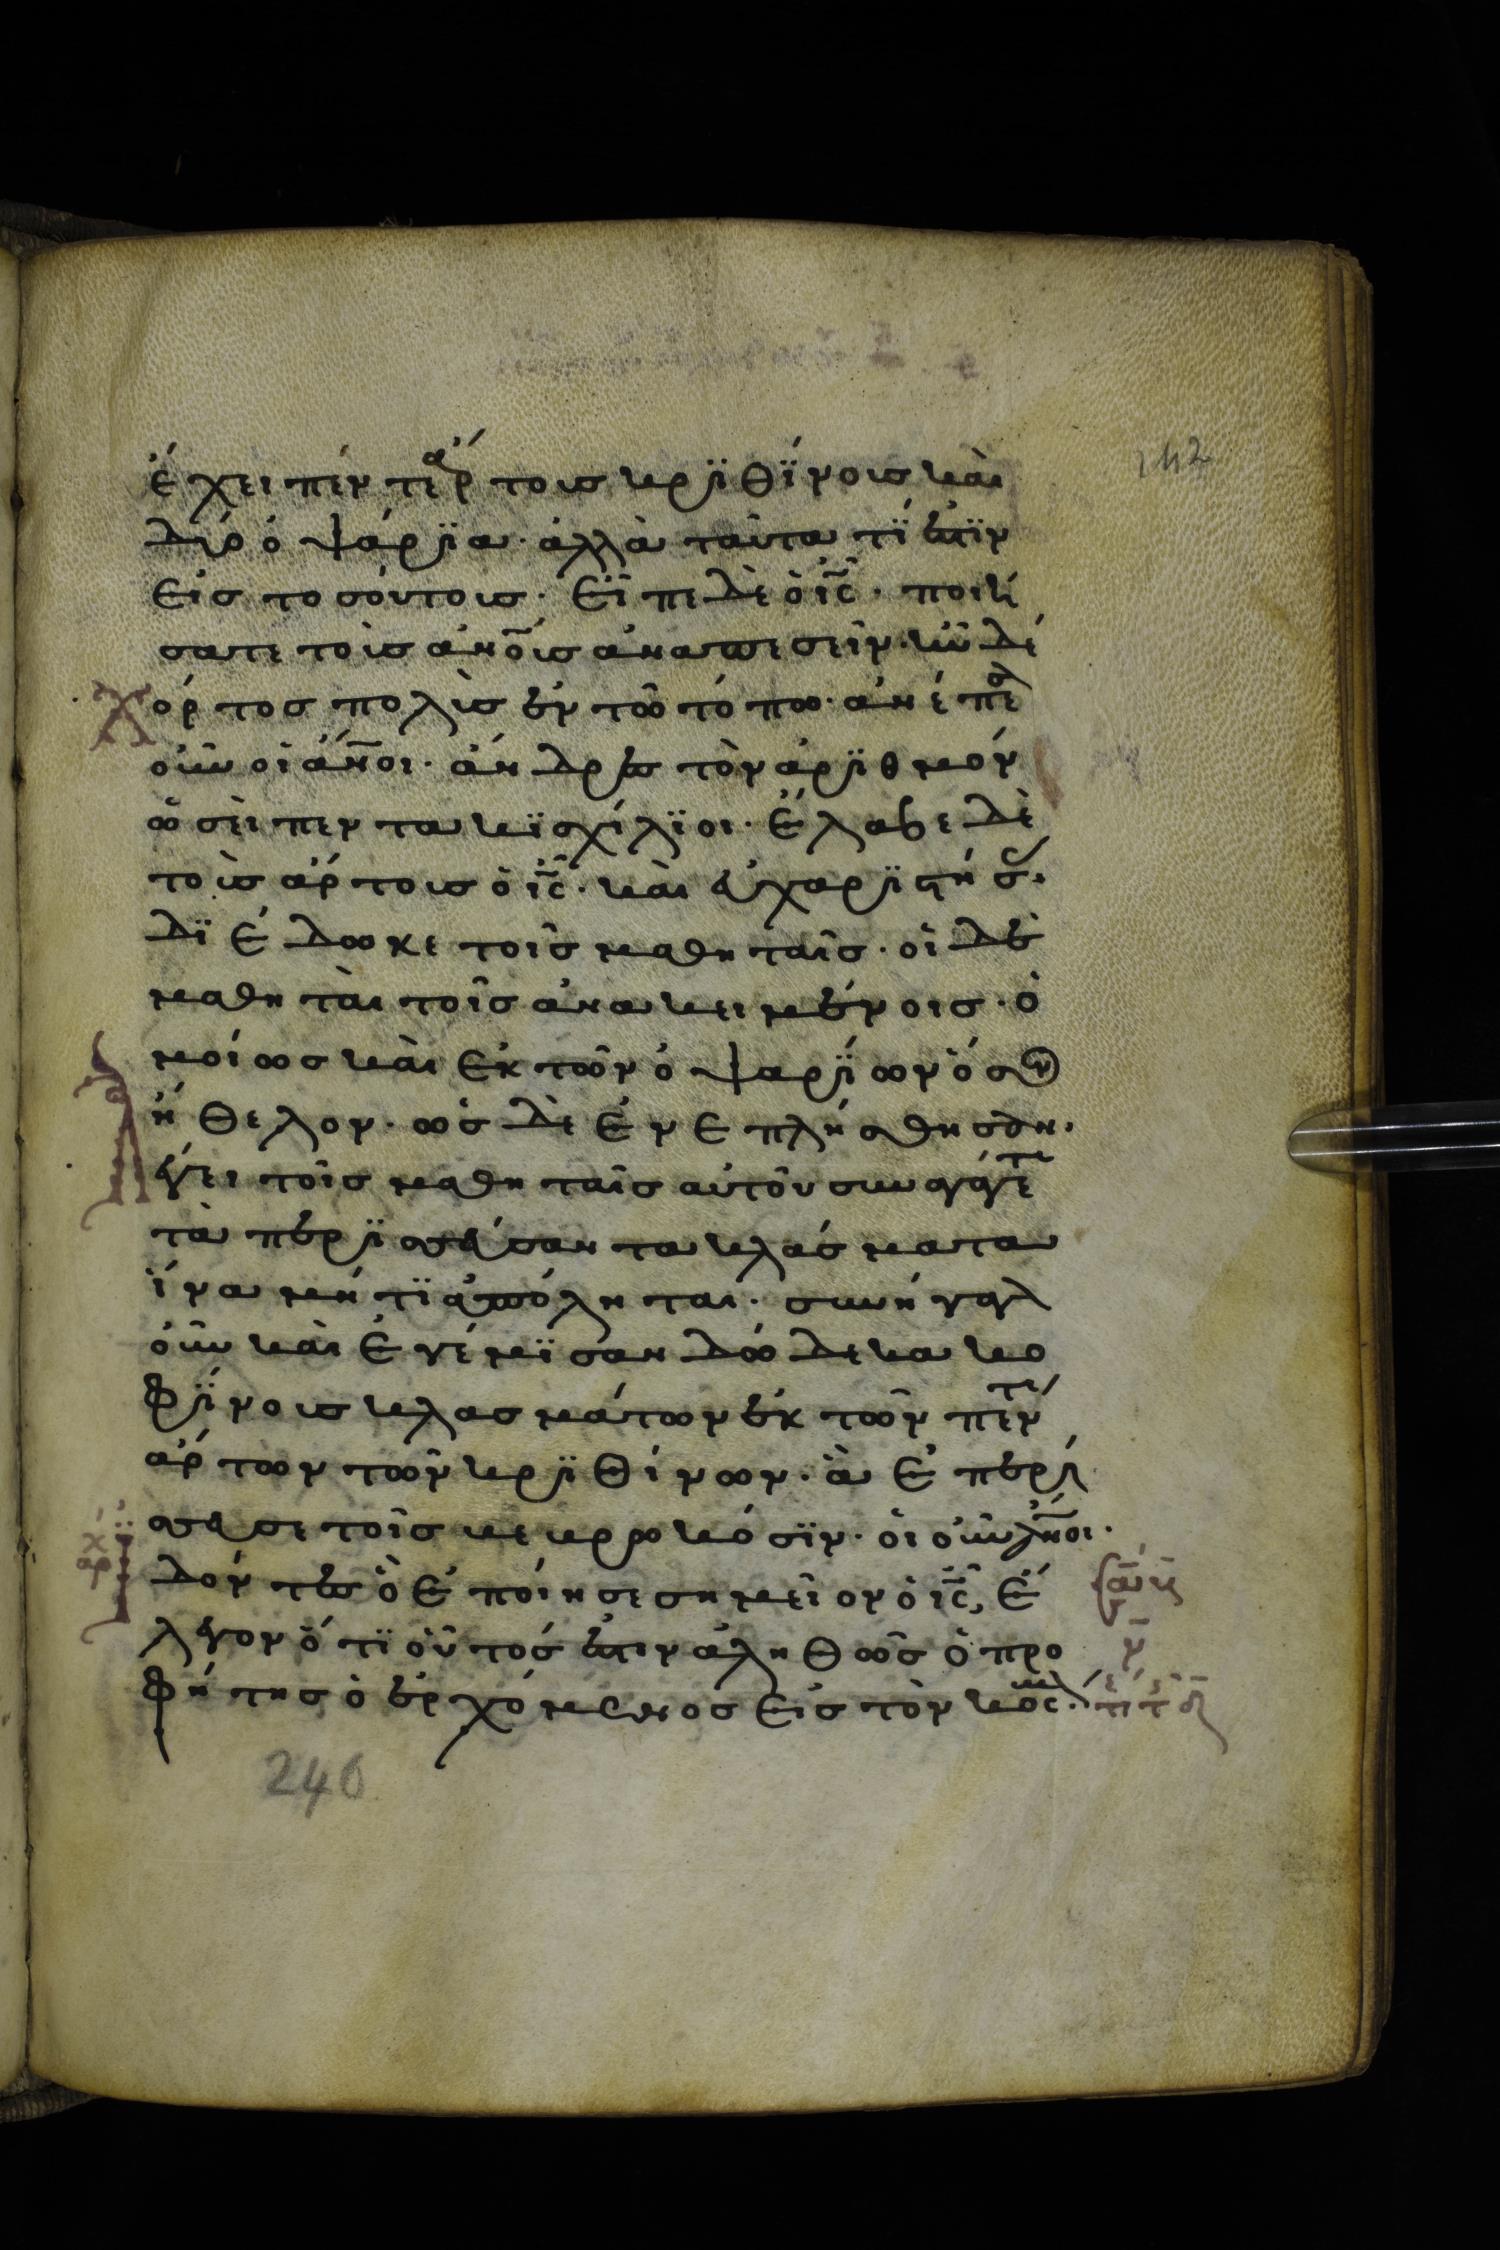 142
ἔχει πέντε ἄρτους κρϊθΐνους καὶ
δύο ὀψάρϊα· ἀλλὰ ταῦτα τί ἐστϊν
εἰς τοσούτους· εἶπε δὲ ὁ ι̅ς̅· ποιή
σατε τοὺς ἀν̅ο̅υς ἀναπεσεῖν· ἦν δέ
χόρτος πολὺς ἐν τῶ τόπω· ἀνέπε
οὖν οἱ ἄν̅οι· ἄνδρες τὸν ἀρϊθμόν
ὡσεὶ πεντακϊσχίλϊοι· ἔλαβε δὲ
τοὺς ἄρτους ὁ ι̅ς̅· καὶ εὐχαρϊστήσ
δϊέδωκε τοῖς μαθηταῖς· οἱ δὲ
μαθηταὶ τοῖς ἀνακειμένοις· ὁ
μοίως καὶ ἐκ τῶν ὀψαρΐων ὅσον
ἤθελον· ὡς δὲ ἐνεπλήσθησαν·
λέγει τοῖς μαθηταῖς αὐτοῦ συναγάγετε
τὰ περϊσσεύσαντα κλάσματα
ἵνα μή τϊ ἀπόληται· συνήγαγ
οὖν καὶ ἐγέμϊσαν δώδεκα κο
φΐνους κλασμάτων ἐκ τῶν πέντε
ἄρτων τῶν κρϊθίνων· ἃ ἐπερί
σσευσε τοῖς βεβρωκόσϊν· οἱ οὖν ἄν̅οι·
ἰδόντες ὃ ἐποίησε σημεῖον ὁ ι̅ς̅, ἔ
λεγον ὅτϊ οὗτός ἐστιν ἀληθῶς ὁ προ
φήτης ὁ ἐρχόμενος εἰς τὸν κόσ
240